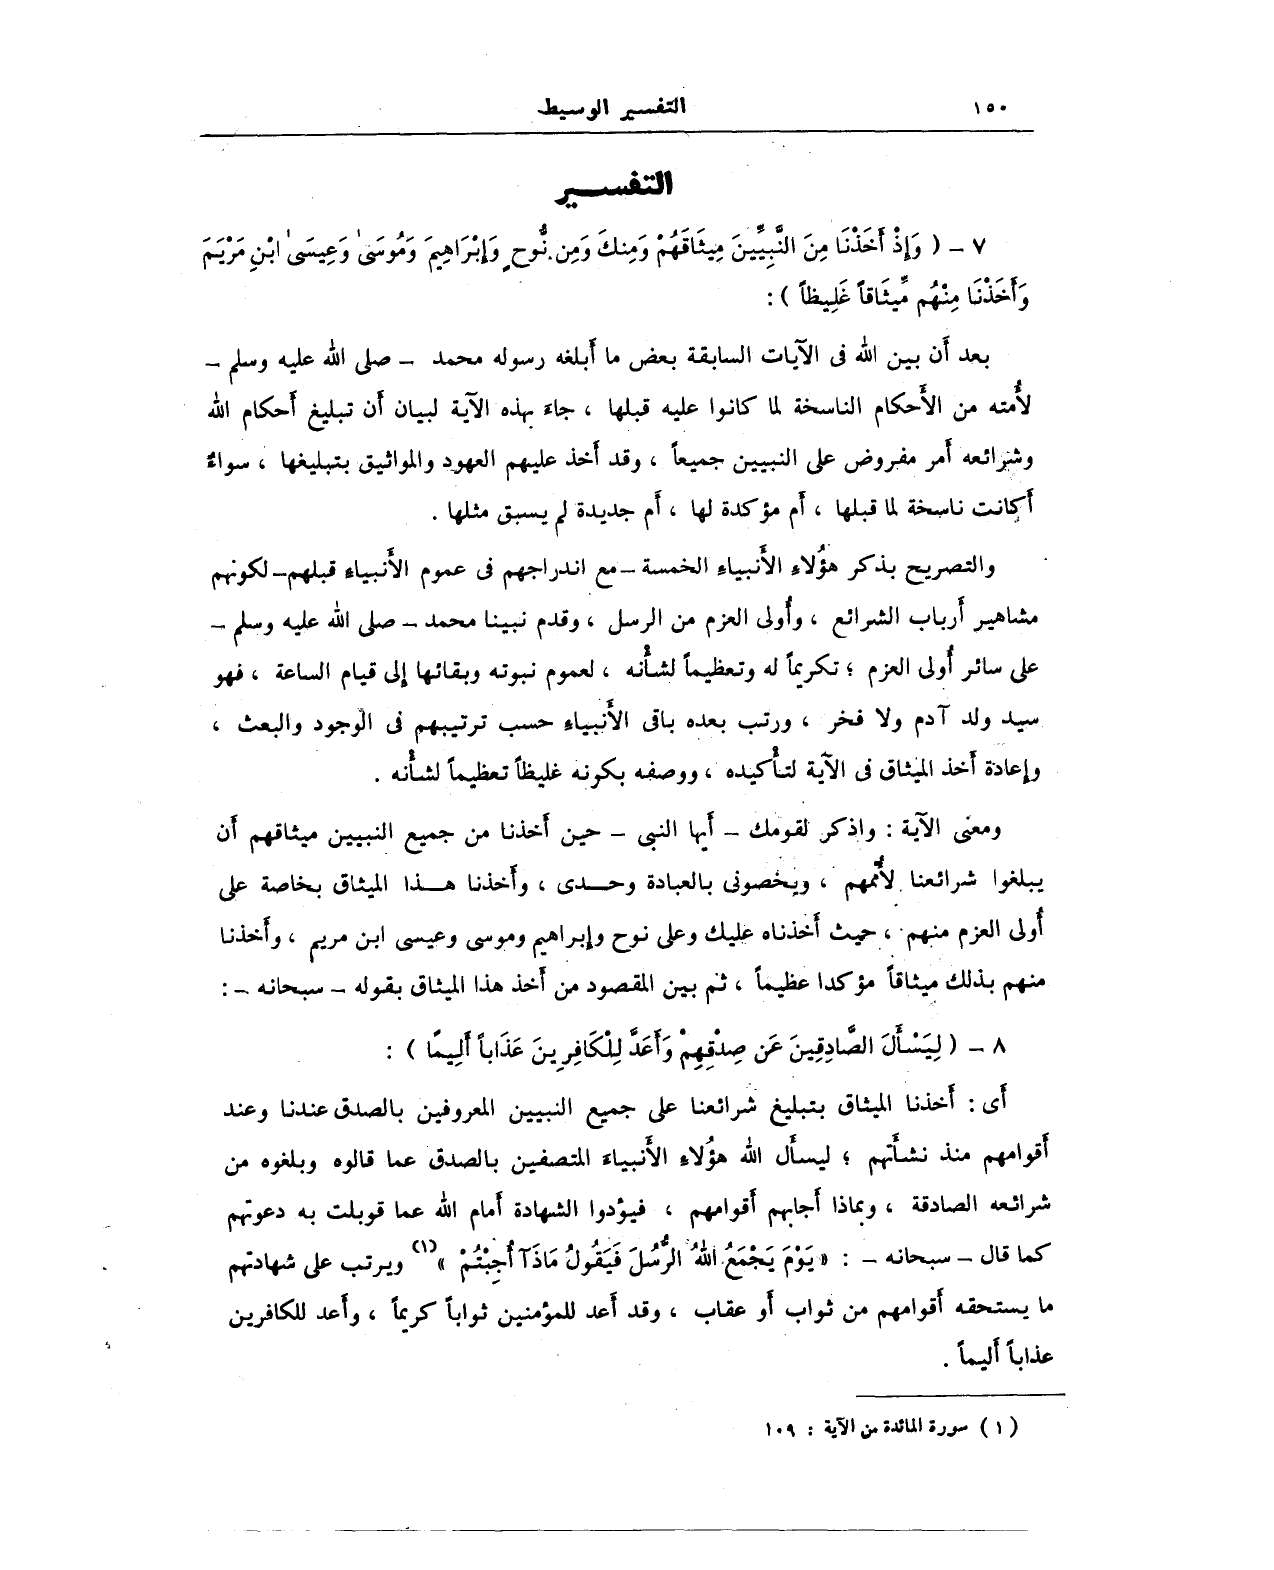 ١٥٠
التفسير الوسيط
التفسير
٧ - ( وَإِذْ أَخَذْنَا مِنَ النَّبِيِّينَ مِيثَاقَهُمْ وَمِنكَ وَمِن نُّوحٍ وَإِبْرَاهِيمَ وَمُوسَىٰ وَعِيسَىٰ ابْنِ مَرْيَمَ
وَأَخَذْنَا مِنْهُم مِّيثَاقاً غَلِيظاً ) :
بعد أن بين الله فى الآيات السابقة بعض ما أبلغه رسوله محمد - صلى الله عليه وسلم -
لأُمته من الأحكام الناسخة لما كانوا عليه قبلها ، جاءَ بهذه الآية لبيان أن تبليغ أحكام الله
وشرائعه أمر مفروض على النبيين جميعاً ، وقد أخذ عليهم العهود والمواثيق بتبليغها ، سواءٌ
أكانت ناسخة لما قبلها ، أم مؤكدة لها ، أم جديدة لم يسبق مثلها .
والتصريح بذكر هؤُلاءِ الأَنبياءِ الخمسة - مع اندراجهم فى عموم الأَنبياءِ قبلهم - لكونهم
مشاهير أرباب الشرائع ، وأُولى العزم من الرسل ، وقدم نبينا محمد - صلى الله عليه وسلم -
على سائر أُولى العزم ؛ تكريماً له وتعظيماً لشأْنه ، لعموم نبوته وبقائها إلى قيام الساعة ، فهو
سيد ولد آدم ولا فخر ، ورتب بعده باقى الأَنبياءِ حسب ترتيبهم فى الوجود والبعث ،
وإعادة أخذ الميثاق فى الآية لتأْكيده ، ووصفه بكونه غليظاً تعظيماً لشأْنه .
ومعنى الآية : واذكر لقومك - أيها النبى - حين أخذنا من جميع النبيين ميثاقهم أن
يبلغوا شرائعنا لأُممهم ، ويخصونى بالعبادة وحدى ، وأخذنا هذا الميثاق بخاصة على
أُولى العزم منهم ، حيث أخذناه عليك وعلى نوح وإبراهيم وموسى وعيسى ابن مريم ، وأخذنا
منهم بذلك ميثاقاً مؤكدا عظيماً ، ثم بين المقصود من أخذ هذا الميثاق بقوله - سبحانه - :
٨ - ( لِيَسْأَلَ الصَّادِقِينَ عَن صِدْقِهِمْ وَأَعَدَّ لِلْكَافِرِينَ عَذَاباً أَلِيمًا ) :
أى : أخذنا الميثاق بتبليغ شرائعنا على جميع النبيين المعروفين بالصدق عندنا وعند
أقوامهم منذ نشأَتهم ؛ ليسأَل الله هؤُلاءِ الأَنبياءَ المتصفين بالصدق عما قالوه وبلغوه من
شرائعه الصادقة ، وبماذا أجابهم أقوامهم ، فيؤدوا الشهادة أمام الله عما قوبلت به دعوتهم
كما قال - سبحانه - : « يَوْمَ يَجْمَعُ اللهُ الرُّسُلَ فَيَقُولُ مَاذَآ أُجِبْتُمْ »(١) ويرتب على شهادتهم
ما يستحقه أقوامهم من ثواب أو عقاب ، وقد أعد للمؤمنين ثواباً كريماً ، وأعد للكافرين
عذاباً أليماً .
(١) سورة المائدة من الآية : ١٠٩